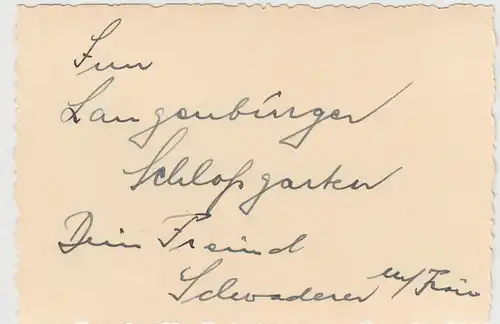 Im
Langenbürger
Schloßgarten
Dein Freind
Schwaderer u/Frau